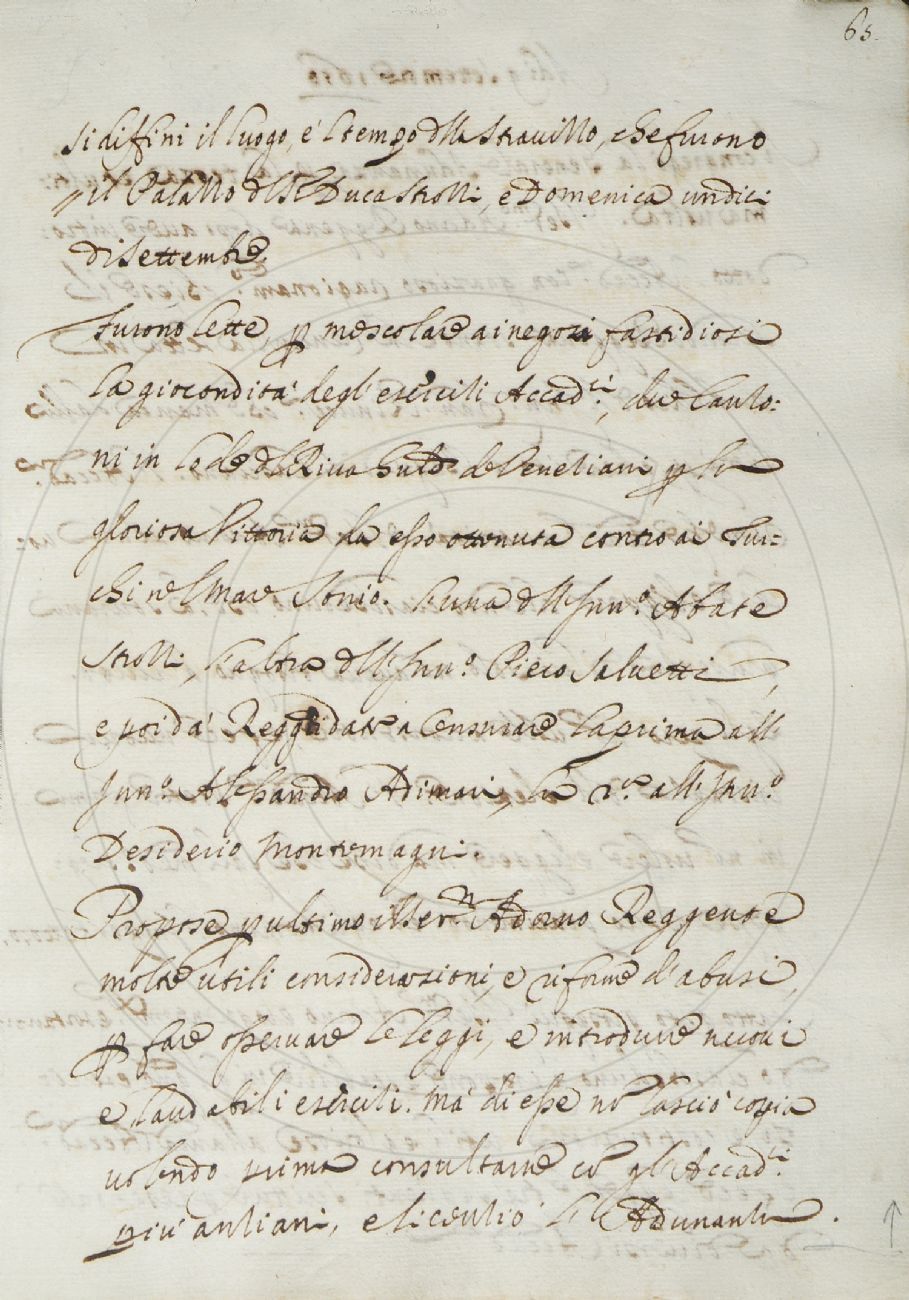 65.
si diffinì il luogo, e 'l tempo dlla Stravizzo, che furono
il Palazzo del Sr Duca Strozzi, e Domenica undici
di Settembre.
Furono lette p mescolare ai negozi fastidiosi
la giocondità degl' esercizi Accad.ci, due Canzo:
ni in lode dl Riva de Veneziani p la
gloriosa Vittoria da esso ottenuta contro ai Tur=
chi nel Mare Ionio. l'una dll' Inn.o Abate
Strozzi, l'altra dll' Inn.o Piero Salvetti,
e poi dà Regg: date a Censurare la prima all'
Inn.o Alessandro Adimari, la 2.a all' Inn.o
Desiderio Montemagni.
Propose p ultimo il Ser.mo Adorno Reggente
molte utili considerazioni, e riforme d' abusi,
p fare osservare le leggi, e introdurre nuovi
e laudabili esercizi. Mà di esse nō lasciò copia
volendo prima consultarne cō gl' Accad.ci
più anziani, e licenziò gl' Adunanti.